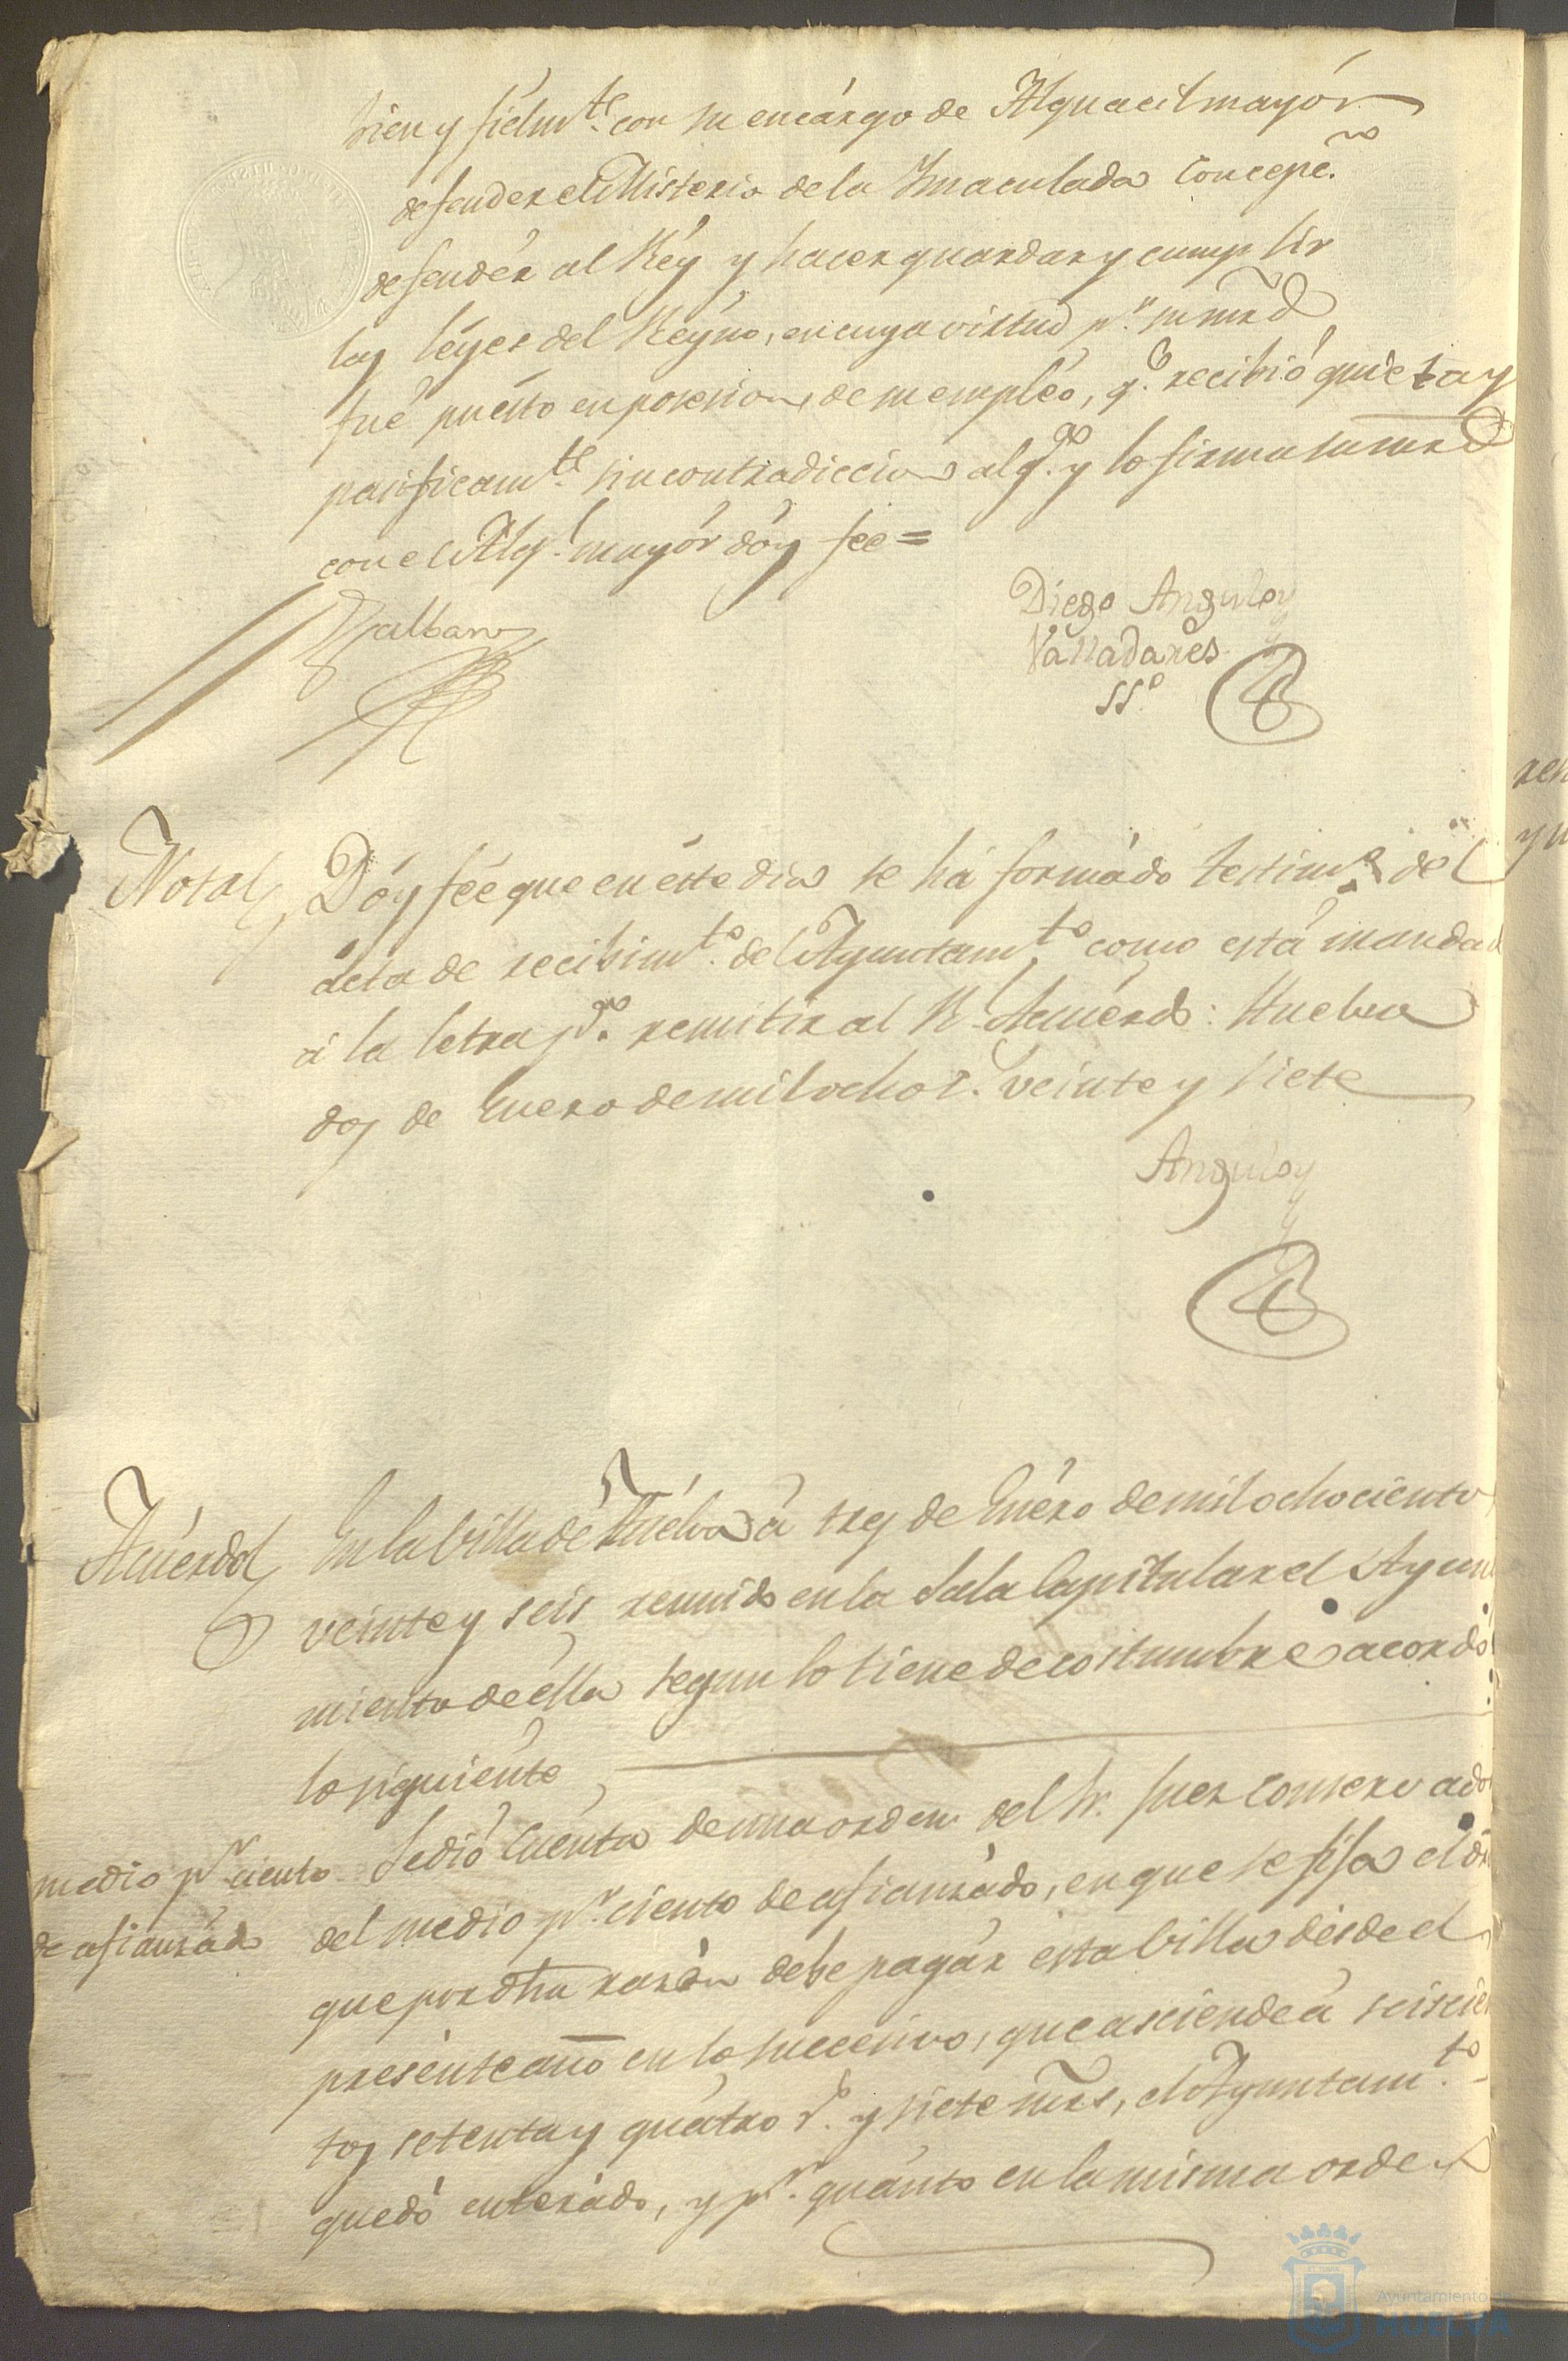 bien y fielm.te con su encárgo de Alguacil mayór
defender el Misterio de la Inmaculada Concepc.on
defendér al Réy y hacer guardar y cumplir
las léyes del Réyno, en cuya virtud p.r su mrd
fué puésto en posesion, de su empléo, q.e recibió quieta y
pacificam.te sin contradiccion alg.na y lo firma su mrd
con el Alg.l mayór dóy fee =
Diego Angulo y
Valladares
SS.o
Nota Dóy fée que en éste dia se há formádo testim.o del
ácta de recibim.to del Ayuntam.to como está mandad
á la letra p.a remitir al R.l Acuérdo: Huelva
dos de Enero de mil ochos.s veinte y siete
Angulo y
Acuérdo En la Villa dé Huélva á tres de Enéro de mil ochociento
veinte y seis reunido en la Sala Capitular el Ayun
miento de élla segun lo tiene de costumbre acordó
lo siguiénte
medio p.r ciento
de afianzádo
Se dió Cuénta de una orden del Sr. Juez Conservado
del medio p.r ciento de afianzádo, en que se fija el
que por dha razón debe pagár ésta Villa désde el
presénte año en lo succesivo, que asciende á seiscien
tos seténta y quátro r.s y siete mrs, el Ayuntam.to
quedó enterádo, y p.r quánto en la misma orden
Ayuntamiento de
HUELVA